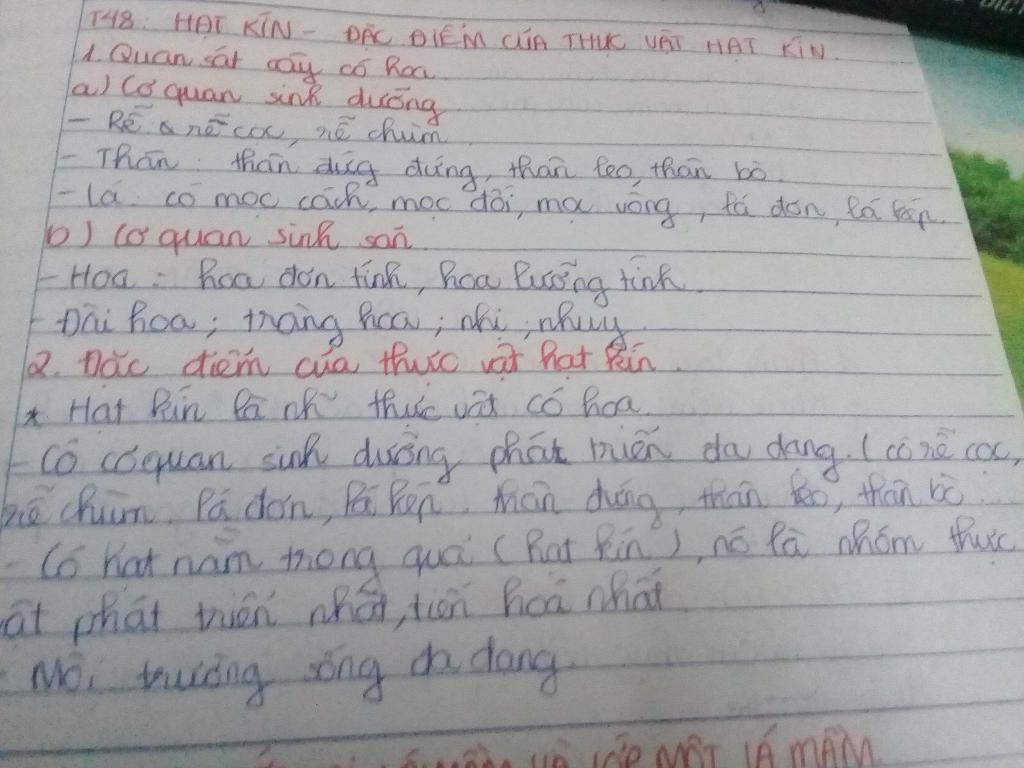 T48: HẠT KÍN - ĐẶC ĐIỂM CỦA THỰC VẬT HẠT KÍN.
1. Quan sát cây có hoa
a) Cơ quan sinh dưỡng
- Rễ: rễ cọc, rễ chùm
- Thân: thân đứg đứng, thân leo, thân bò.
- Lá: có mọc cách, mọc đối, mọc vòng, lá đơn, lá kép
b) Cơ quan sinh sản
- Hoa: hoa đơn tính, hoa lưỡng tính.
- Đài hoa; tràng hoa; nhị; nhụy
2. Đặc điểm của thực vật hạt kín.
* Hạt kín là nh~ thực vật có hoa.
- Có cơ quan sinh dưỡng phát triển đa dạng. (có rễ cọc,
rễ chùm, lá đơn, lá kép. thân đứng, thân leo, thân bò
- Có hạt nằm trong quả (hạt kín), nó là nhóm thực
vật phát triển nhất, tiến hoá nhất
- Môi trường sống đa dạng.
MẦM VÀ LỚP MỘT LÁ MẦM